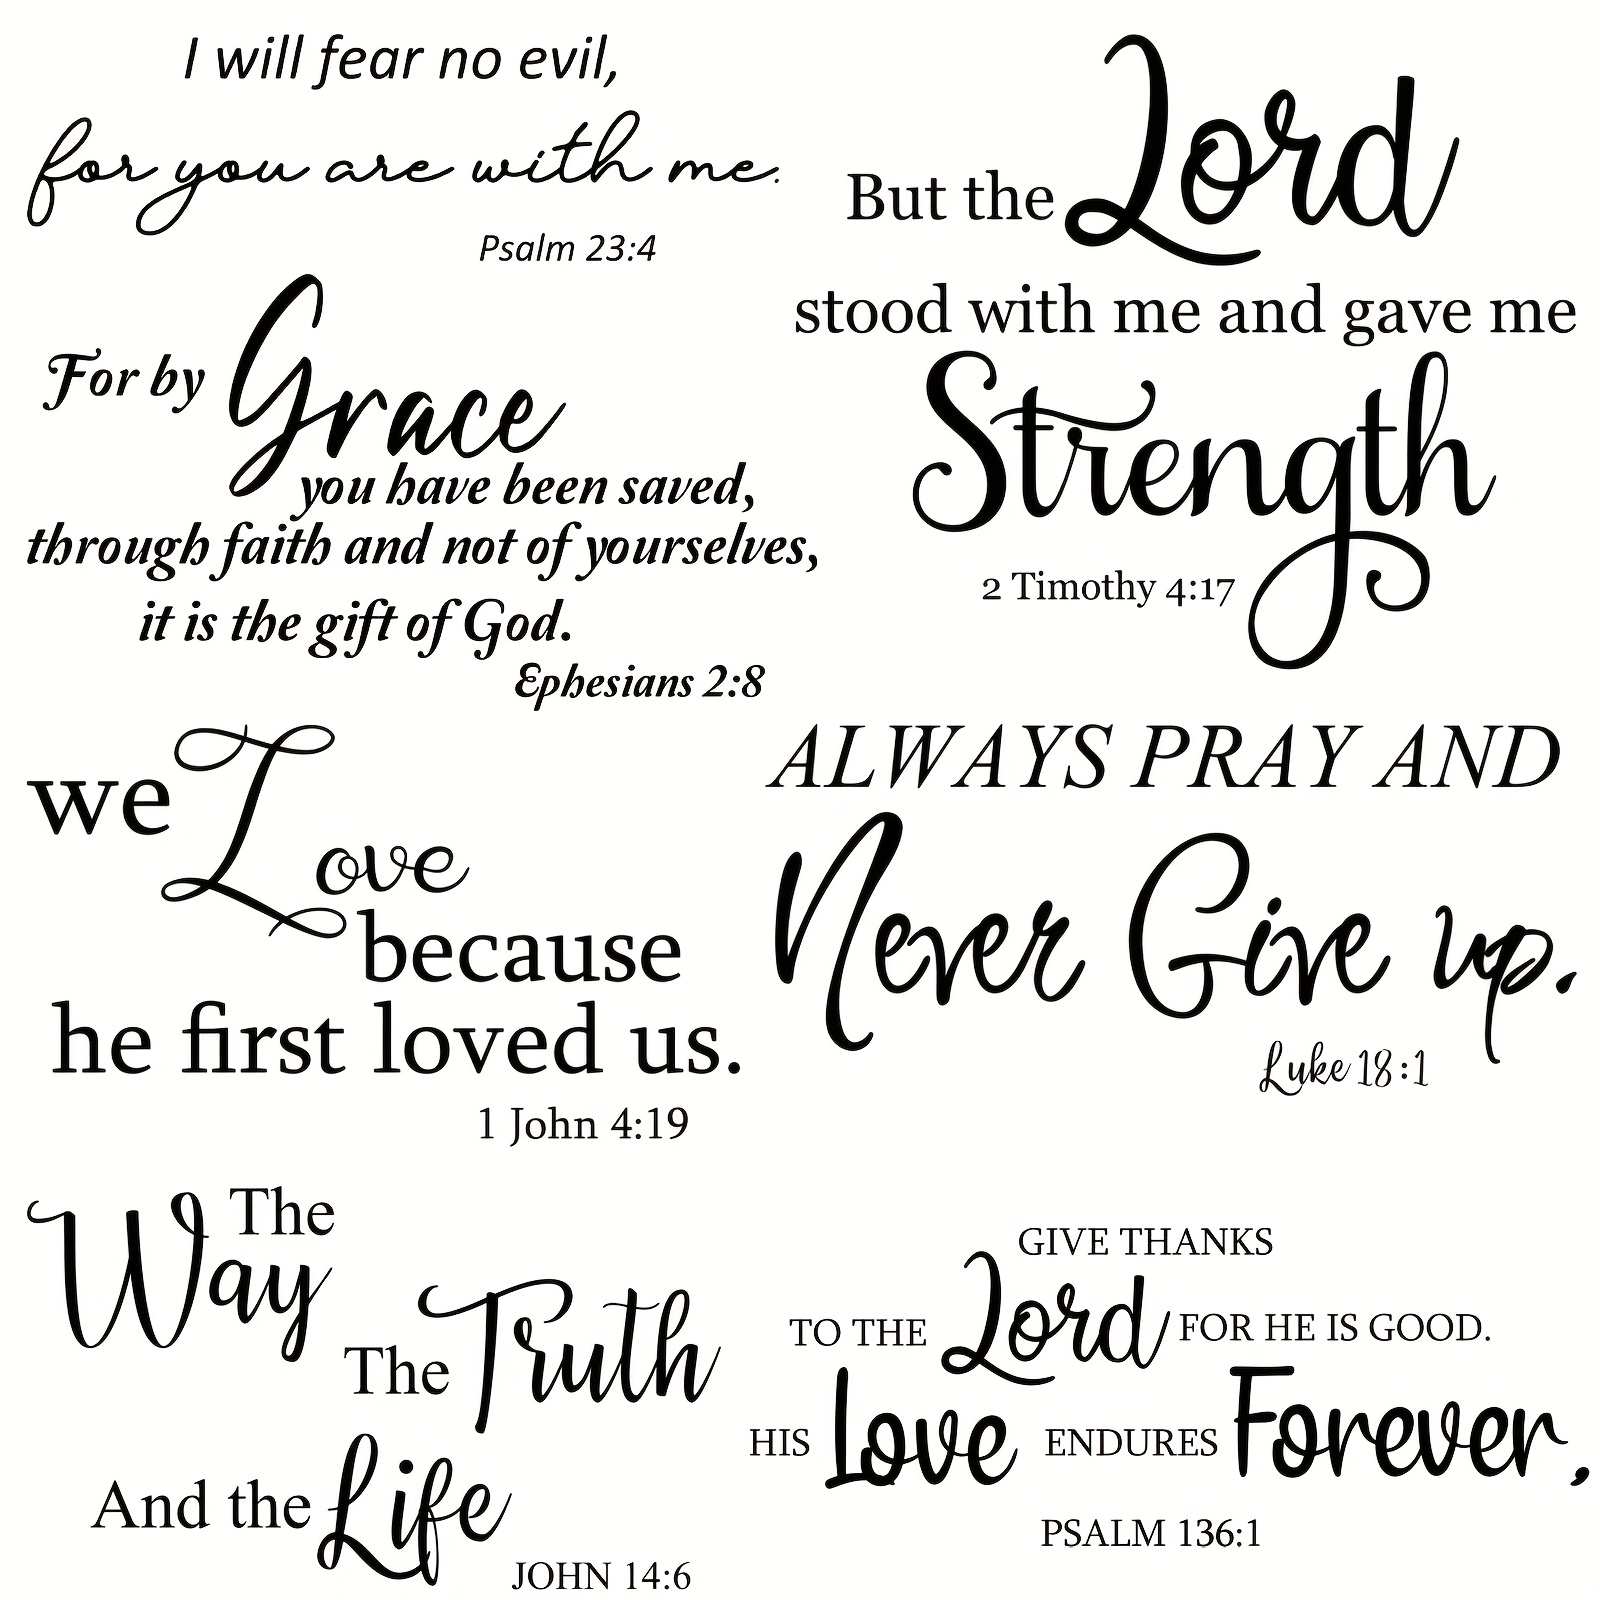 I will fear no evil,
for you are with me.
Psalm 23:4
But the Lord
stood with me and gave me
Strength
2 Timothy 4:17
For by Grace
you have been saved,
through faith and not of yourselves,
it is the gift of God.
Ephesians 2:8
we Love
because
he first loved us.
1 John 4:19
ALWAYS PRAY AND
Never Give up.
Luke 18:1
The
Way
The Truth
And the Life
JOHN 14:6
GIVE THANKS
TO THE Lord FOR HE IS GOOD.
HIS Love ENDURES Forever,
PSALM 136:1